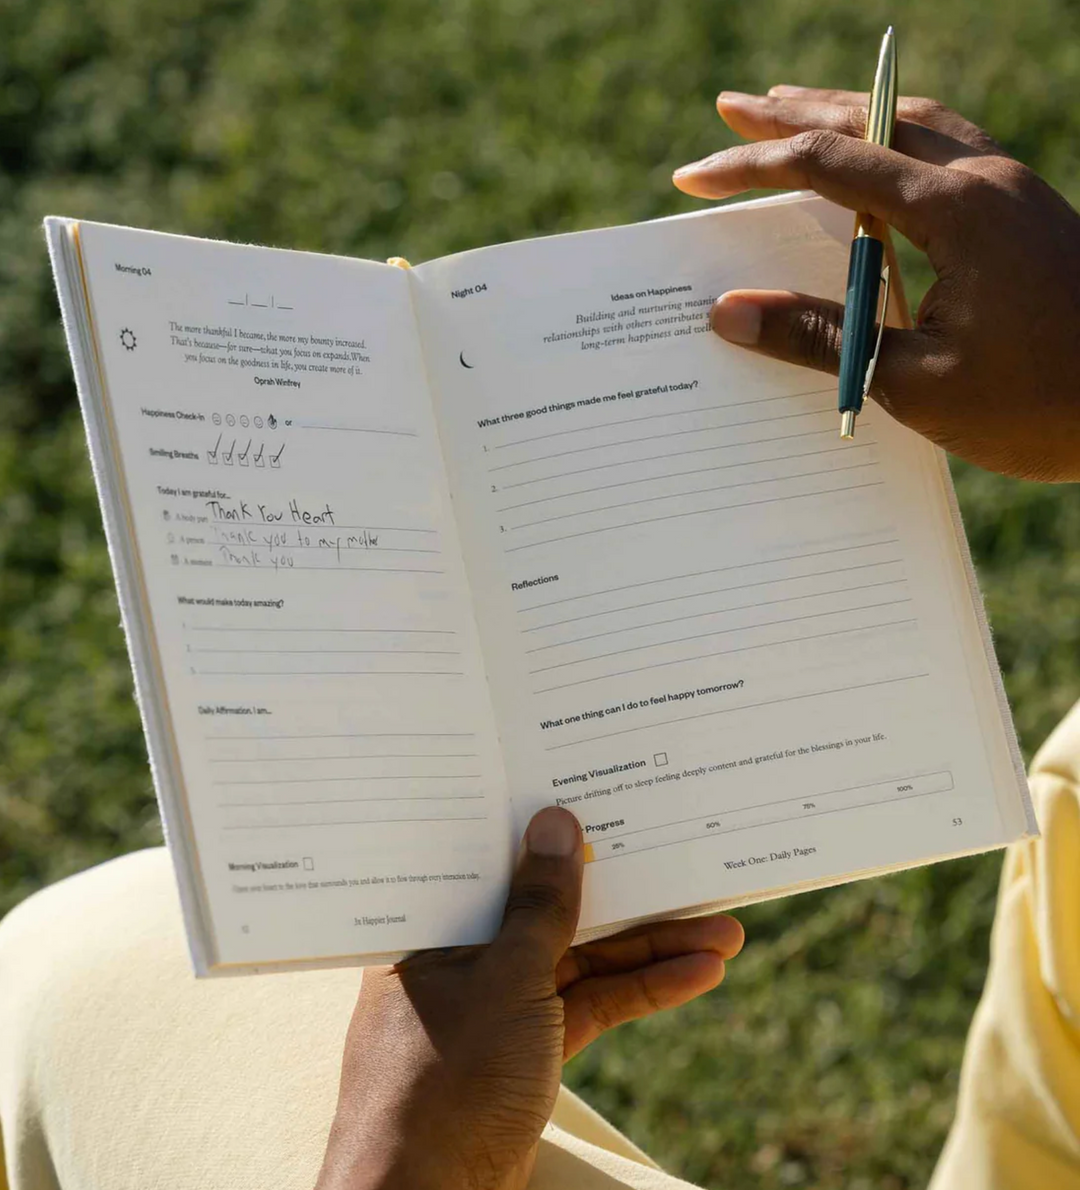 Morning 04
_ | _ | _
The more thankful I became, the more my bounty increased.
That's because—for sure—what you focus on expands. When
you focus on the goodness in life, you create more of it.
Oprah Winfrey
Happiness Check-in or
Smiling Breaths
Today I am grateful for...
A body part Thank You Heart
A person Thank you to my mother
A moment Thank you
What would make today amazing?
1.
2.
3.
Daily Affirmation. I am...
Morning Visualization
Open your heart to the love that surrounds you and allow it to flow through every interaction today.
In Happier Journal
Night 04
Ideas on Happiness
Building and nurturing meanin
relationships with others contributes
long-term happiness and well
What three good things made me feel grateful today?
1.
2.
3.
Reflections
What one thing can I do to feel happy tomorrow?
Evening Visualization
Picture drifting off to sleep feeling deeply content and grateful for the blessings in your life.
Progress
25% 50% 75% 100%
Week One: Daily Pages
53